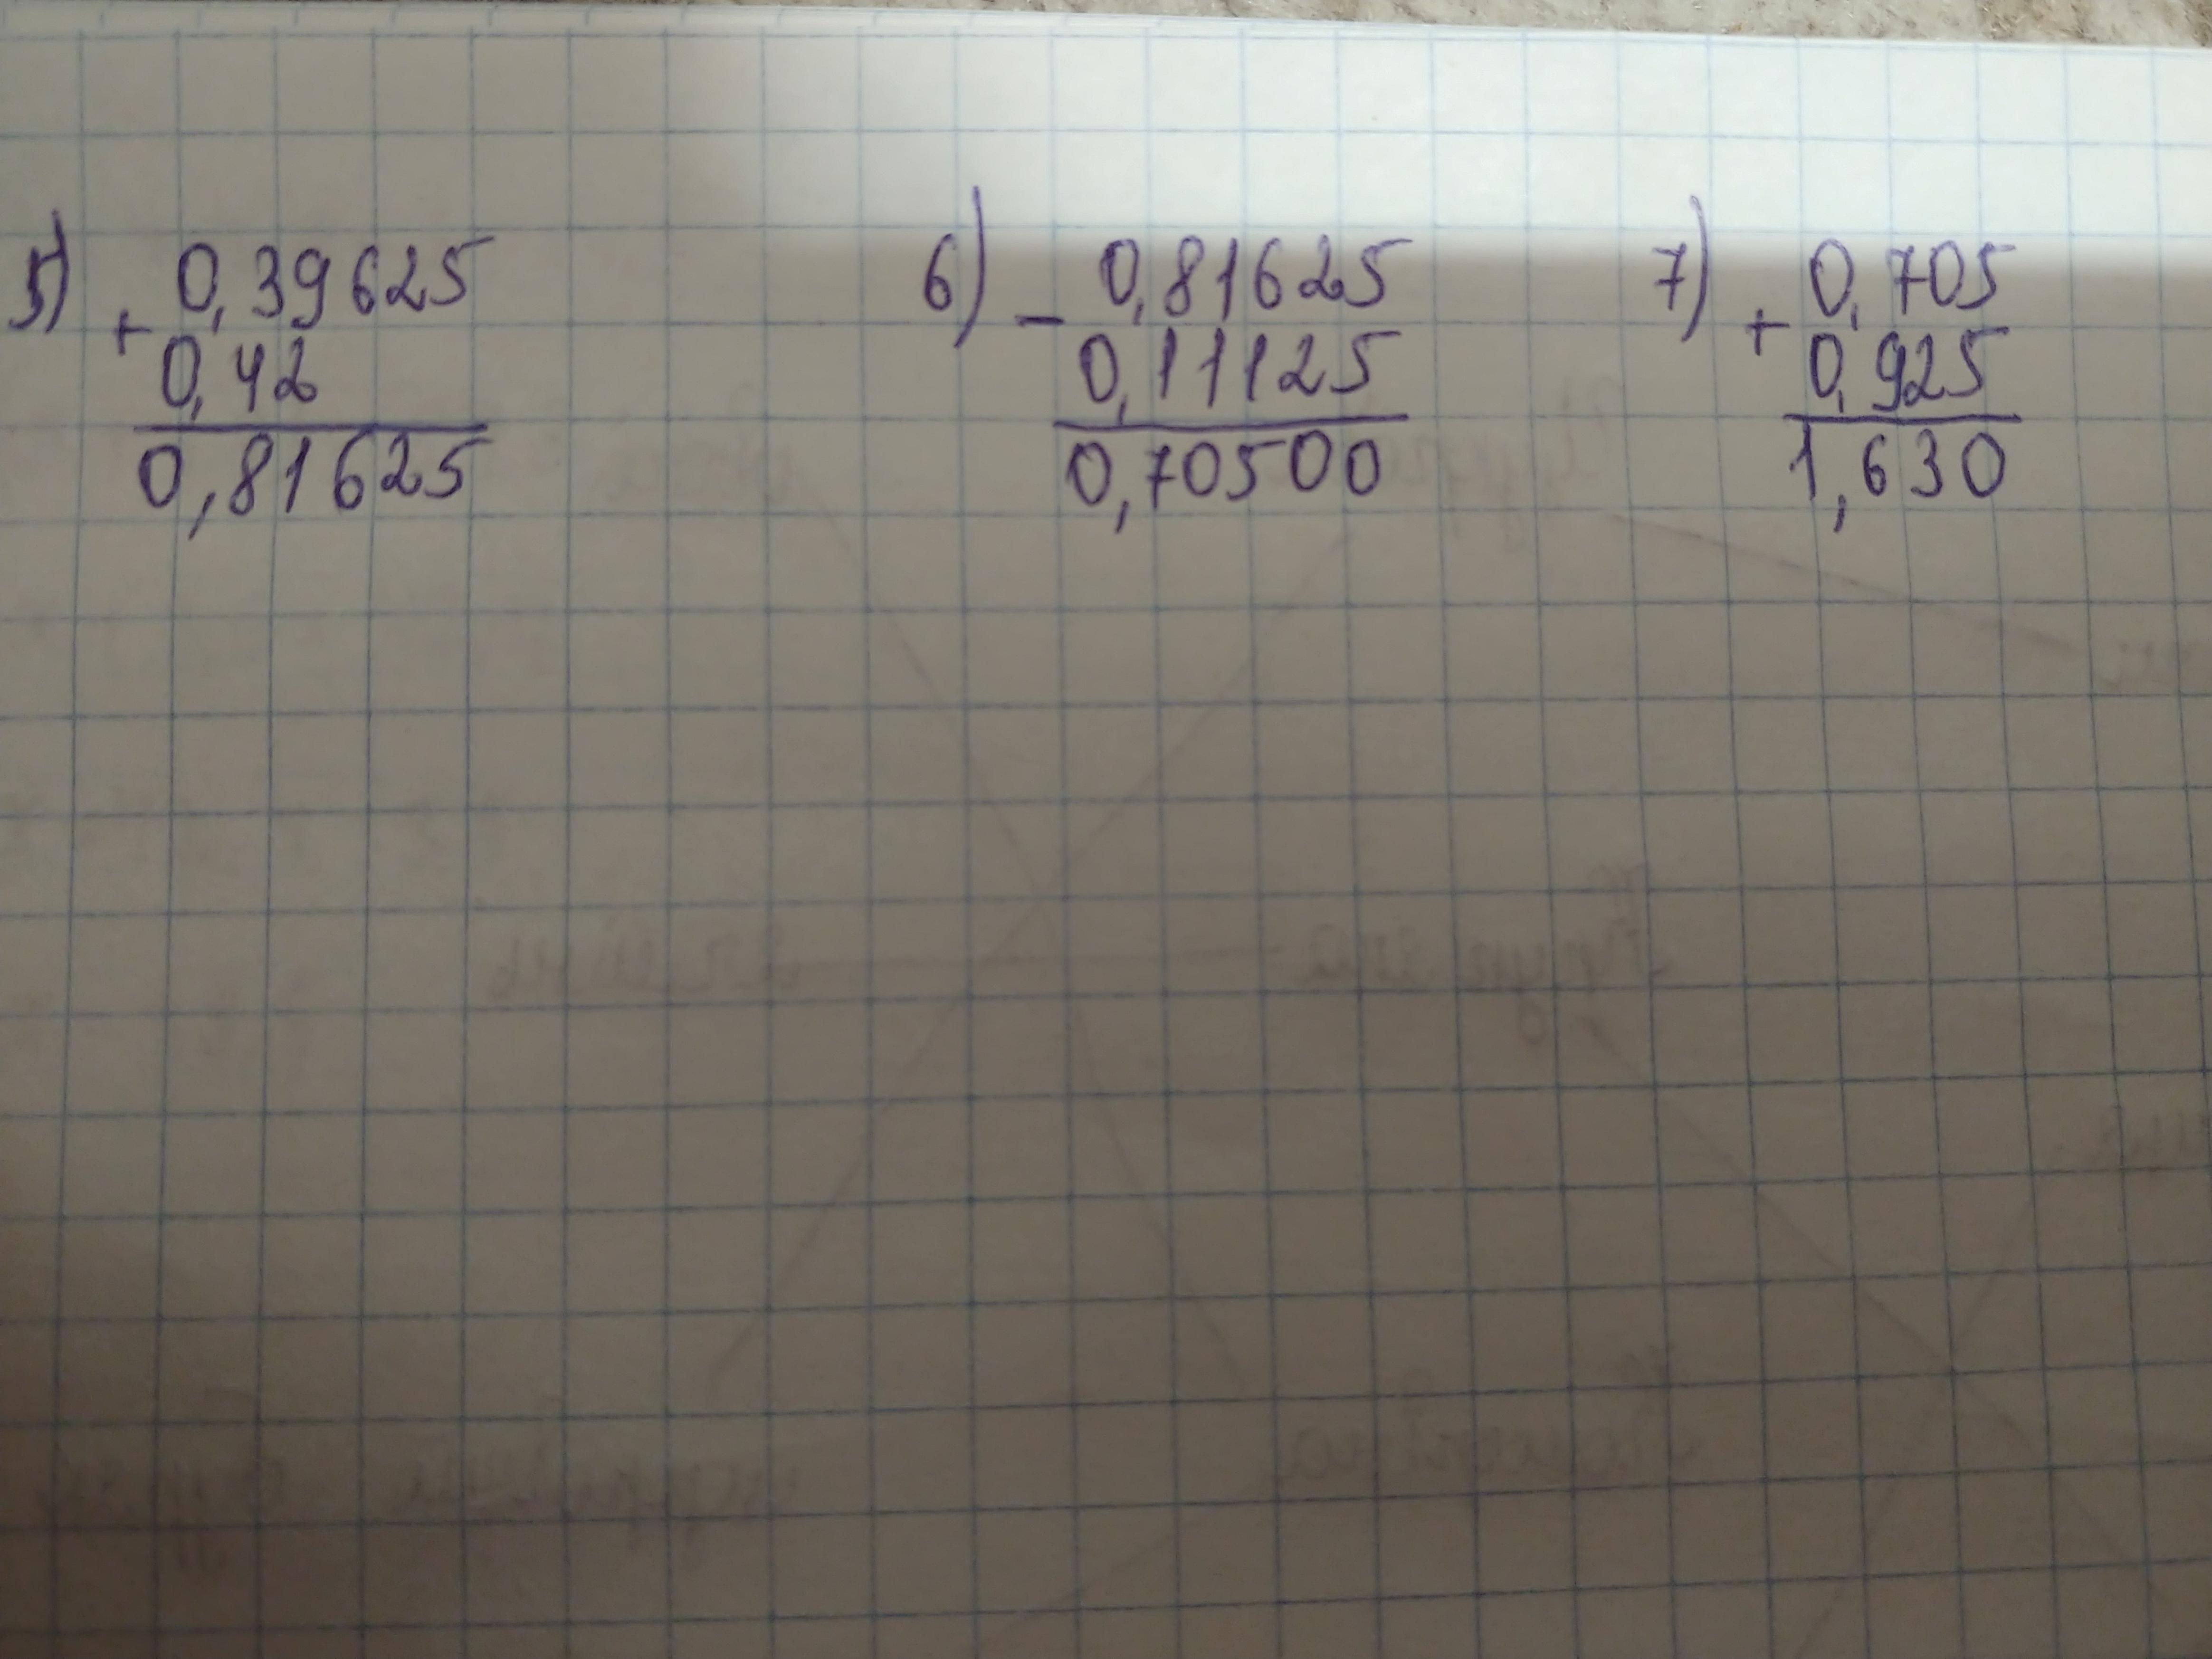 5) + 0,39625
0,42
0,81625
6) - 0,81625
0,11125
0,70500
7) + 0,705
0,925
1,630